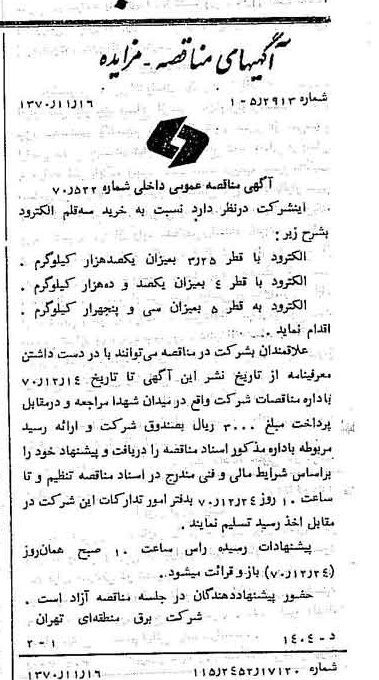 آگهیهای مناقصه - مزایده
شماره ۵٫۲۹۱۳-۱ ۱۳۷۰٫۱۱٫۱۶
آگهی مناقصه عمومی داخلی شماره ۷۰٫۵۲۲
اینشرکت درنظر دارد نسبت به خرید سه‌قلم الکترود
بشرح زیر:
الکترود با قطر ۳٫۲۵ بمیزان یکصدهزار کیلوگرم .
الکترود با قطر ٤ بمیزان یکصد و ده‌هزار کیلوگرم .
الکترود به قطر ۵ بمیزان سی و پنجهرار کیلوگرم .
اقدام نماید .
علاقمندان بشرکت در مناقصه می‌توانند با در دست داشتن
معرفینامه از تاریخ نشر این آگهی تا تاریخ ۷۰٫۱۲٫۱٤
باداره مناقصات شرکت واقع در میدان شهدا مراجعه و درمقابل
پرداخت مبلغ ۳۰۰۰ ریال بصندوق شرکت و ارائه رسید
مربوطه باداره مذکور اسناد مناقصه را دریافت و پیشنهاد خود را
براساس شرایط مالی و فنی مندرج در اسناد مناقصه تنظیم و تا
ساعت ۱۰ روز ۷۰٫۱۲٫۲٤ بدفتر امور تدارکات این شرکت در
مقابل اخذ رسید تسلیم نمایند .
پیشنهادات رسیده راس ساعت ۱۰ صبح همان‌روز
(۷۰٫۱۲٫۲٤) باز و قرائت میشود .
حضور پیشنهاددهندگان در جلسه مناقصه آزاد است .
شرکت برق منطقه‌ای تهران
د - ۱٤۰٤ ۱ - ۲
شماره ۱۱۵٫۲٤۵۲٫۱۷۱۲۰ ۱۳۷۰٫۱۱٫۱۶